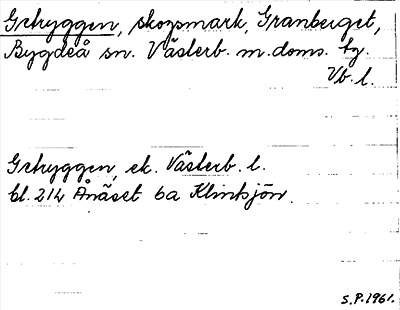 Getryggen, skogsmark, Granberget,
Bygdeå sn. Västerb. m. doms. tg.
Vb. l.
Getryggen, ek. Västerb. l.
bl. 214 Ånäset 6a Klintsjön.
S.P. 1961.